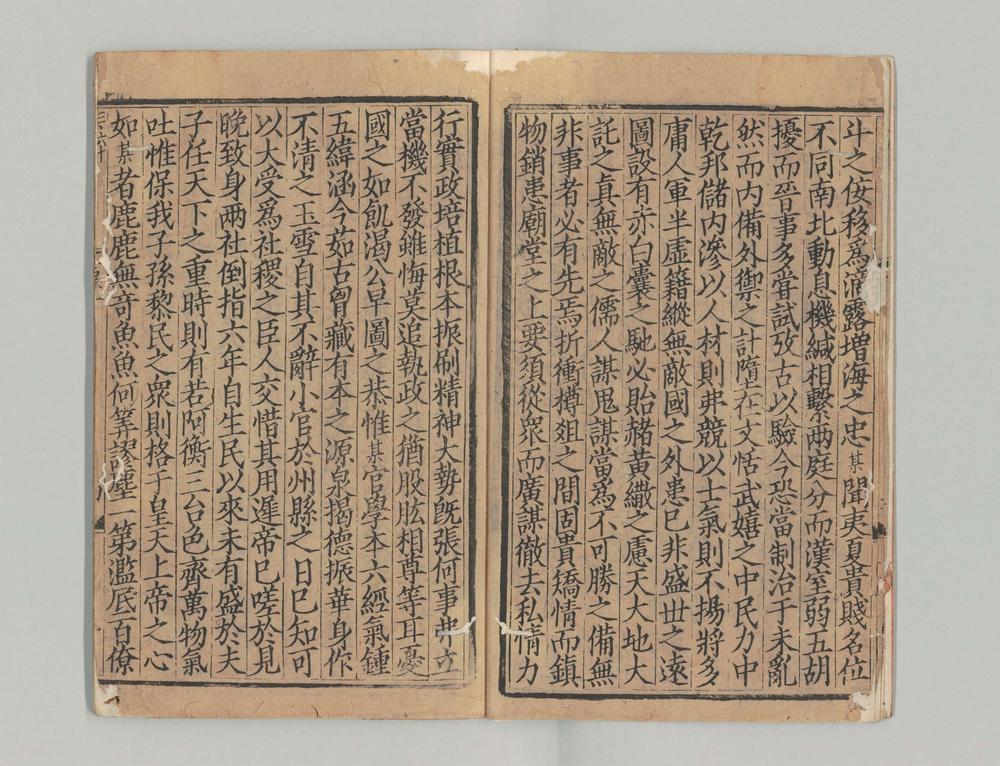 斗之佞移爲滴露增海之忠某聞夷夏貴賤名位
不同南北動息機緘相繫兩庭分而漢室弱五胡
擾而晉事多嘗試攷古以驗今恐當制治于未亂
然而内備外禦之計墮在文恬武嬉之中民力中
乾邦儲内滲以人材則弗競以士氣則不揚將多
庸人軍半虛籍縱無敵國之外患已非盛世之遠
圖設有赤白囊之馳必貽赭黄繖之慮天大地大
託之真無敵之儒人謀鬼謀當爲不可勝之備無
非事者必有先焉折衝樽俎之間固貴矯情而鎮
物銷患廟堂之上要須從衆而廣謀徹去私情力
行實政培植根本振刷精神大勢旣張何事弗立
當機不發雖悔莫追執政之猶股肱相尊等耳憂
國之如飢渴公早圖之恭惟某官學本六經氣鍾
五緯涵今茹古曾藏有本之源泉揭德振華身作
不清之玉雪自其不辭小官於州縣之日已知可
以大受爲社稷之臣人交惜其用遲帝已嗟於見
晚致身兩社倒指六年自生民以來未有盛於夫
子任天下之重時則有若阿衡三台色齊萬物氣
吐惟保我子孫黎民之衆則格于皇天上帝之心
如某者鹿鹿無奇魚魚何等謬塵一第濫底百僚